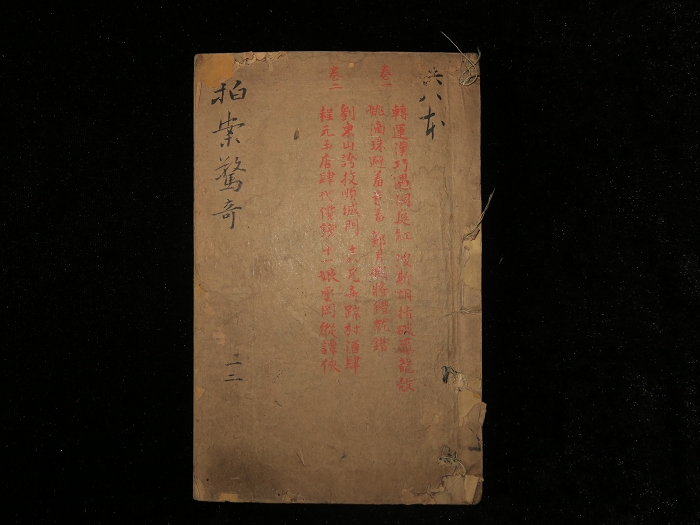 共八本
卷一
轉運漢巧遇洞庭紅 波斯胡指破鼉龍殼
姚滴珠避羞惹羞 鄭月娥將錯就錯
卷二
劉東山誇技順城門 十八兄奇踪村酒肆
程元玉店肆代償錢 十一娘雲岡縱譚俠
拍案驚奇
一二